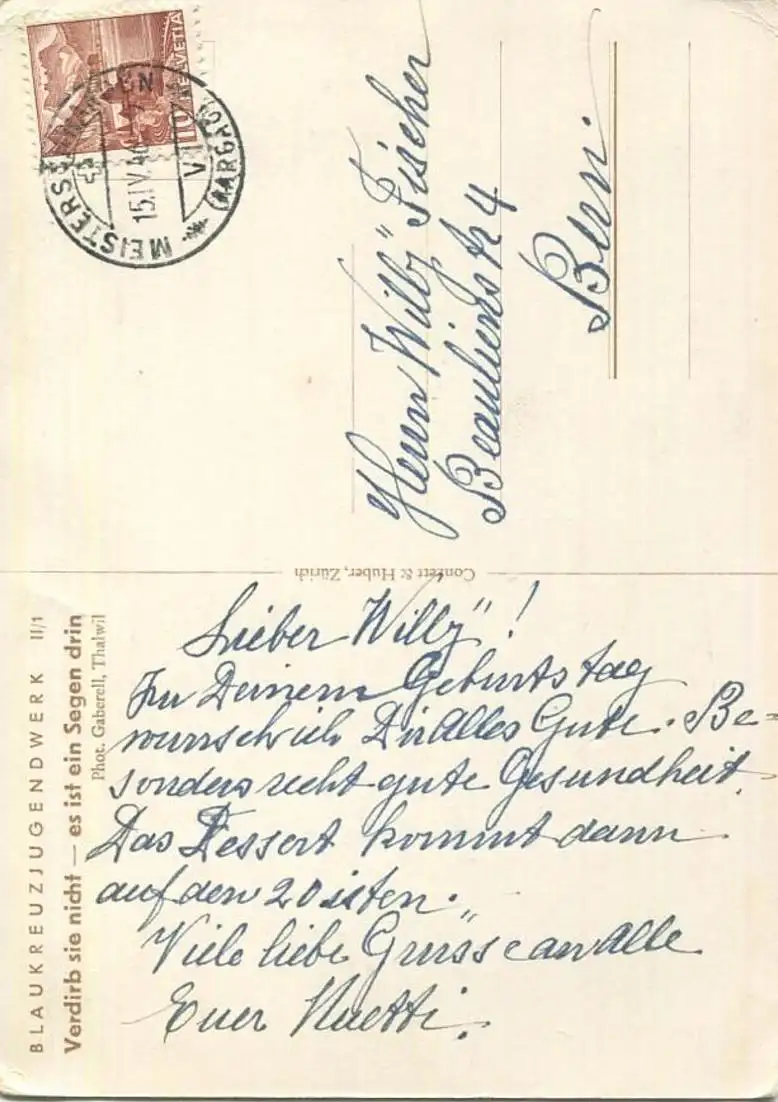 HELVETIA
10
MEISTERSCHWANDEN
15.IV.40
(AARGAU)
Herrn Willy Fischer
Beaulieustr 4
Bern.
Conzett & Huber, Zürich
BLAUKREUZJUGENDWERK II/1
Verdirb sie nicht — es ist ein Segen drin
Phot. Gaberell, Thalwil
Lieber Willy!
Zu Deinem Geburtstag
wünsch ich Dir Alles Gute. Be-
sonders recht gute Gesundheit.
Das Dessert kommt dann
auf den 20isten.
Viele liebe Grüsse an Alle
Euer